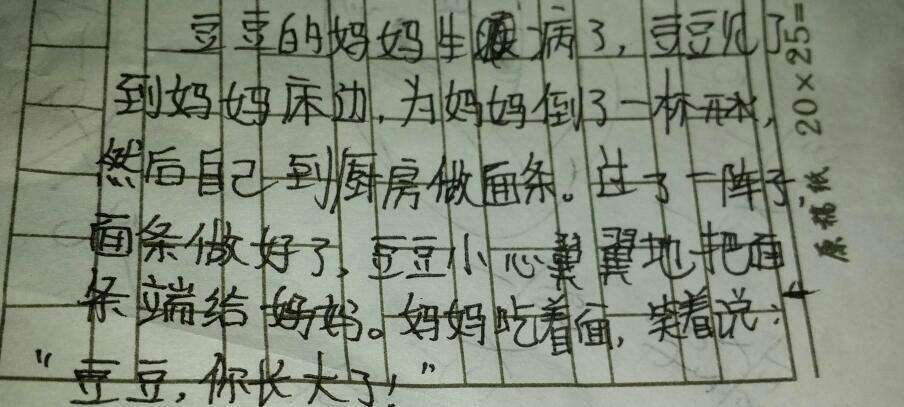 豆豆的妈妈生病了，豆豆见了
到妈妈床边，为妈妈倒了一杯开水，
然后自己到厨房做面条。过了一阵子
面条做好了，豆豆小心翼翼地把面
条端给妈妈。妈妈吃着面，笑着说：
“豆豆，你长大了！”
20×25=
原稿纸